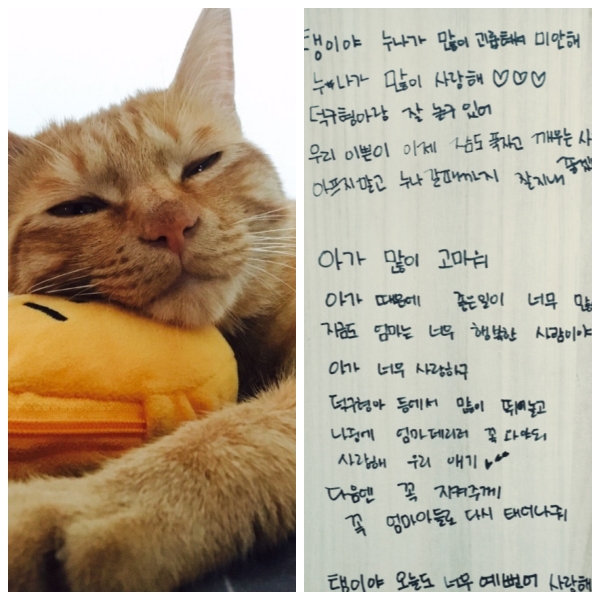 탱이야 누나가 많이 괴롭혀서 미안해
누나가 많이 사랑해 ♡♡♡
덕구형아랑 잘 놀구 있어
우리 이쁜이 이제 잠도 푹자고 깨우는 사
아프지말고 누나 갈때까지 잘지내
아가 많이 고마워
아가 때문에 좋은일이 너무 많
지금도 엄마는 너무 행복한 사람이야
아가 너무 사랑하구
덕구형아 등에서 많이 뛰어놀고
나중에 엄마 데리러 꼭 와야되
사랑해 우리 애기
다음엔 꼭 지켜주께
꼭 엄마아들로 다시 태어나줘
탱이야 오늘도 너무 예뻤어 사랑해